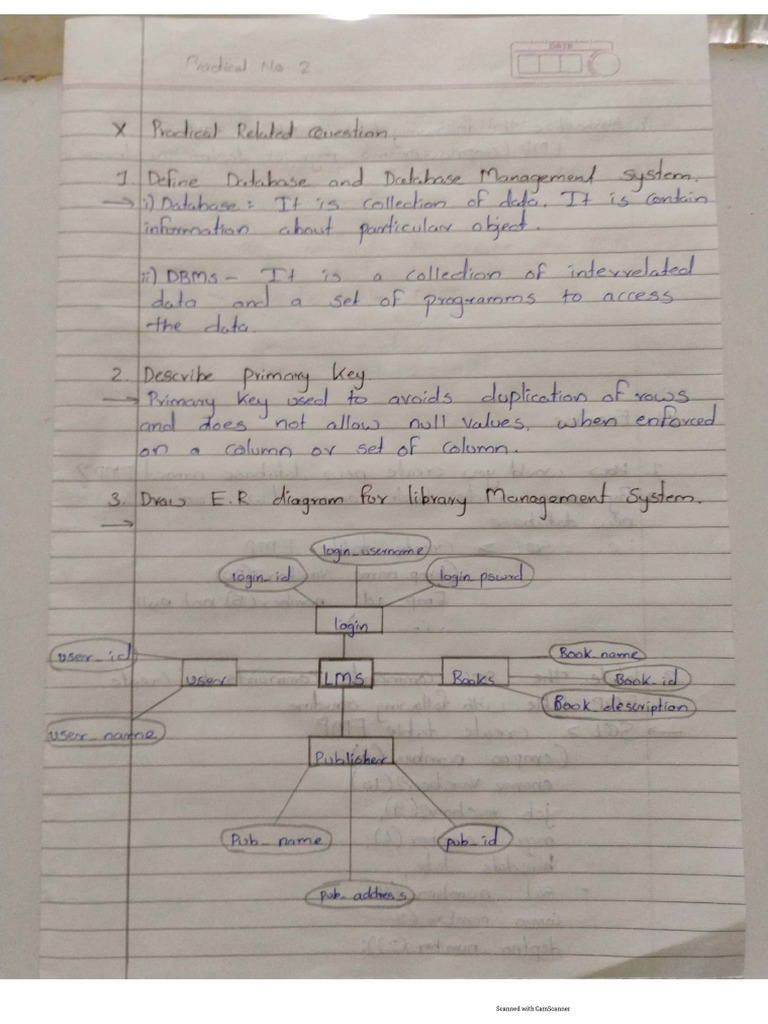 Practical No 2
DATE
X Practical Related Question.
1 Define Database and Database Management System.
→ i) Database : It is collection of data. It is contain
information about particular object.
ii) DBMS - It is a collection of interrelated
data and a set of programms to access
the data.
2. Describe Primary Key.
→ Primary Key used to avoids duplication of rows
and does not allow null values, when enforced
on a column or set of column.
3. Draw E.R diagram for library Management System.
→
login_username
login_id login_pswrd
login
user_id Book_name
user LMS Books Book_id
Book_description
user_name
Publisher
Pub_name pub_id
pub_address
Scanned with CamScanner